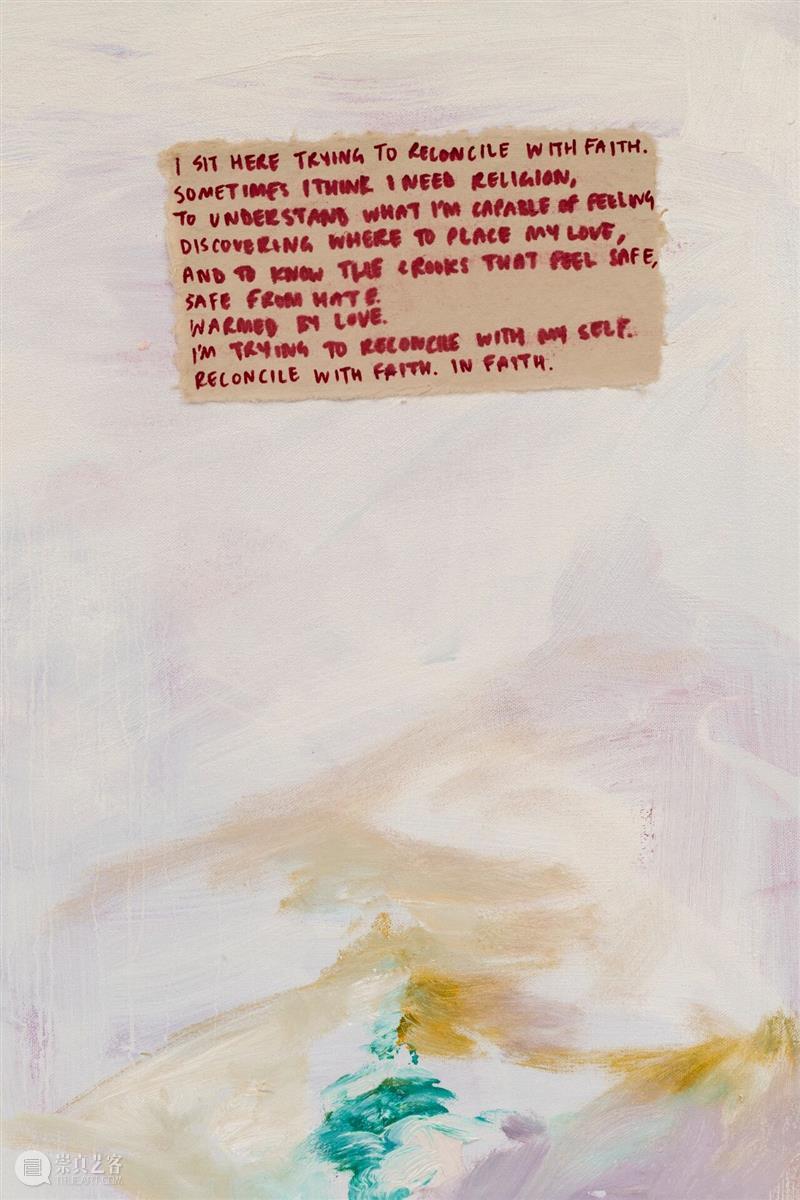 I SIT HERE TRYING TO RECONCILE WITH FAITH.
SOMETIMES I THINK I NEED RELIGION,
TO UNDERSTAND WHAT I'M CAPABLE OF FEELING
DISCOVERING WHERE TO PLACE MY LOVE,
AND TO KNOW THE CROOKS THAT FEEL SAFE,
SAFE FROM HATE.
WARMED BY LOVE.
I'M TRYING TO RECONCILE WITH MY SELF.
RECONCILE WITH FAITH. IN FAITH.
崇真艺客
TRUEART.COM